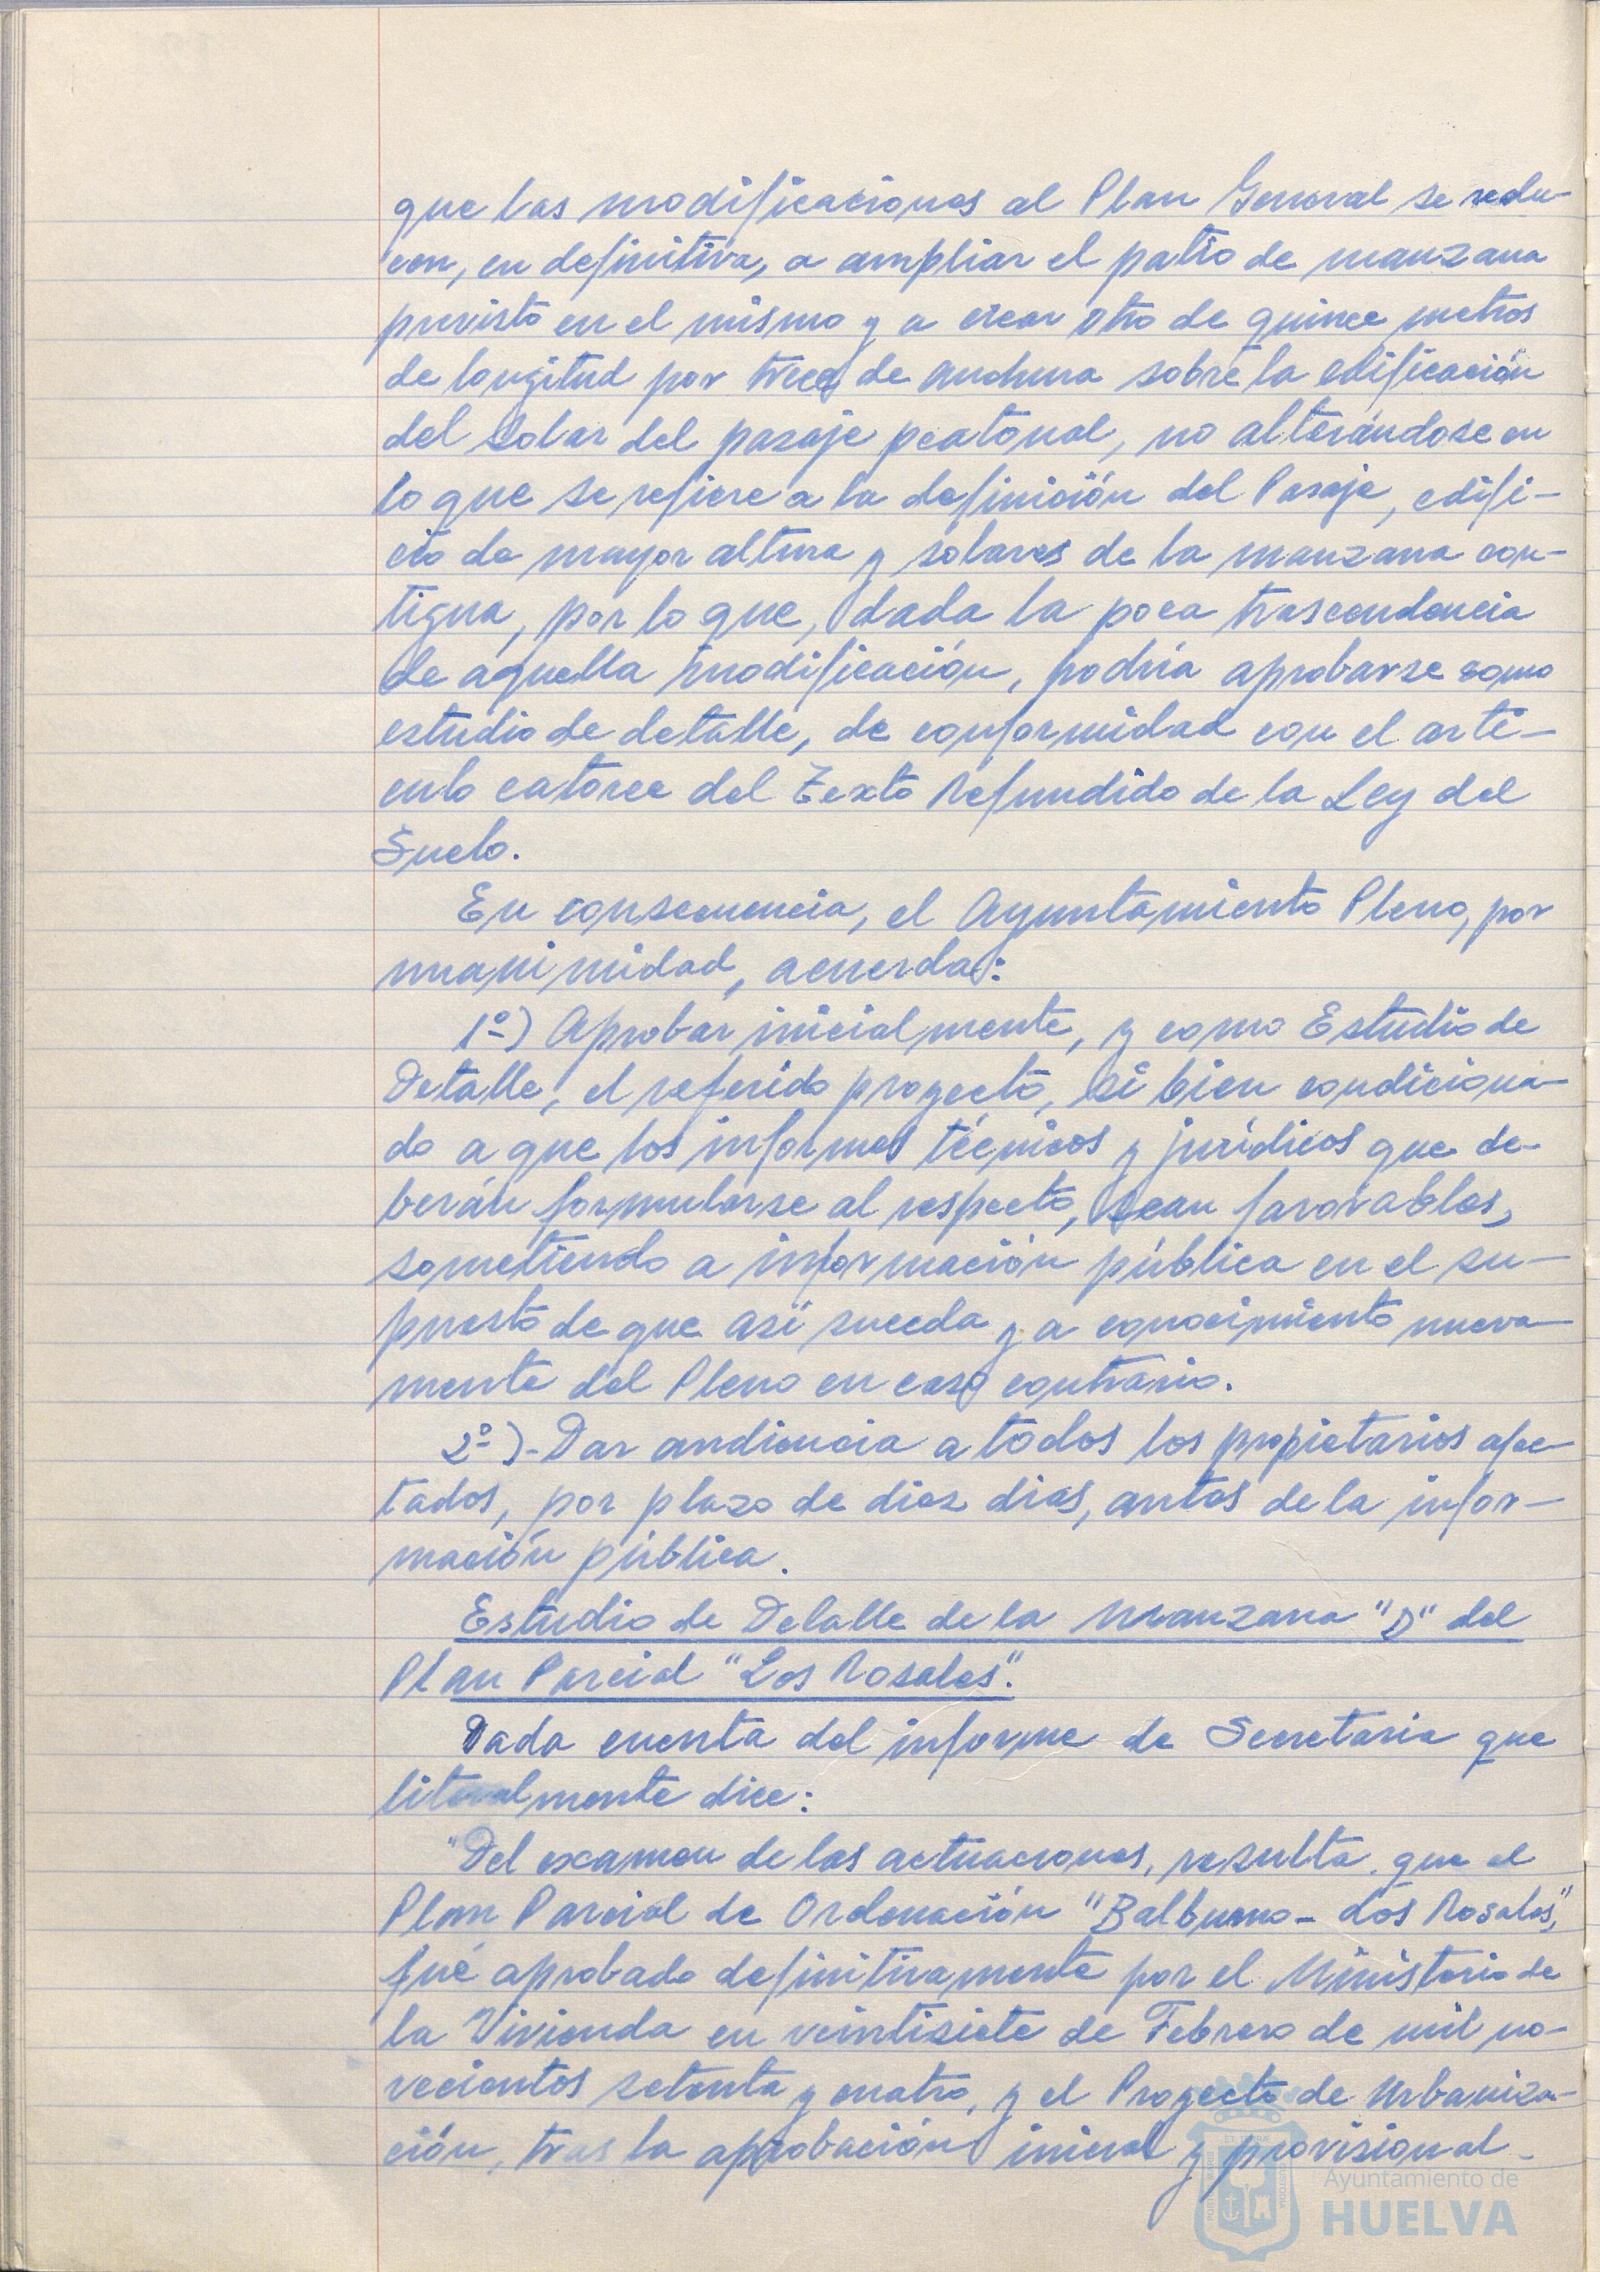 que las modificaciones al Plan General se redu-
cen, en definitiva, a ampliar el patio de manzana
previsto en el mismo y a crear otro de quince metros
de longitud por trece de anchura sobre la edificación
del solar del pasaje peatonal, no alterándose en
lo que se refiere a la definición del Pasaje, edifi-
cio de mayor altura y solares de la manzana con-
tigua, por lo que, dada la poca trascendencia
de aquella modificación, podría aprobarse como
estudio de detalle, de conformidad con el artí-
culo catorce del Texto Refundido de la Ley del
Suelo.
En consecuencia, el Ayuntamiento Pleno, por
unanimidad, acuerda:
1º) Aprobar inicialmente, y como Estudio de
Detalle, el referido proyecto, si bien condiciona-
do a que los informes técnicos y jurídicos que de-
berán formularse al respecto, sean favorables,
sometiendo a información pública en el su-
puesto de que así suceda y a conocimiento nueva-
mente del Pleno en caso contrario.
2º)-Dar audiencia a todos los propietarios afec-
tados, por plazo de diez dias, antes de la infor-
mación pública.
Estudio de Detalle de la Manzana "D" del
Plan Parcial "Los Rosales".
Dada cuenta del informe de Secretaria que
literalmente dice:
"Del examen de las actuaciones, resulta que el
Plan Parcial de Ordenación "Balbueno-Los Rosales",
fué aprobado definitivamente por el Ministerio de
la Vivienda en veintisiete de Febrero de mil no-
vecientos setenta y cuatro, y el Proyecto de Urbaniza-
ción, tras la aprobación inicial y provisional-
Ayuntamiento de
HUELVA